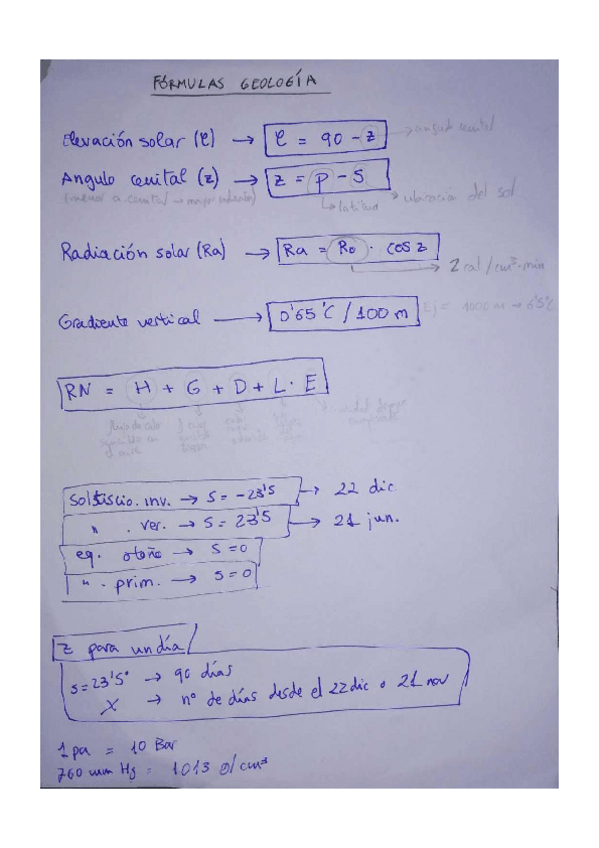 FÓRMULAS GEOLOGÍA
Elevación solar (e) → e = 90 - z → angulo cenital
Angulo cenital (z) → z = p - s
(menor a. cenital → mayor radiación) → latitud → ubicación del sol
Radiación solar (Ra) → Ra = Ro · cos z
→ 2 cal/cm³·min
Gradiente vertical → 0'65°C / 100 m Ej = 1000 m → 6'5°C
RN = H + G + D + L · E
flujo de calor
Solstiscio. inv. → s = -23'5 → 22 dic
" . ver. → s = 23'5 → 21 jun.
eq. otoño → s = 0
" . prim. → s = 0
z para un día
s = 23'5° → 90 días
X → nº de días desde el 22 dic o 21 nov
1 pa = 10 Bar
760 mm Hg = 1013 g/cm³